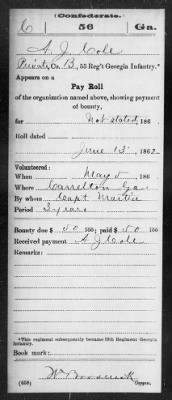 (Confederate.)
C 56 Ga.
A. J. Cole
Private, Co. B, 55 Reg't Georgia Infantry.*
Appears on a
Pay Roll
of the organization named above, showing payment
of bounty,
for Not stated, 186 .
Roll dated
June 13, 1862
Volunteered:
When May 5, 186
Where Carrollton Ga
By whom Capt Martin
Period 3 years
Bounty due $ 50 100; paid $ 50 100
Received payment A J Cole
Remarks:
*This regiment subsequently became
Infantry.
Book mark:
Copyist.